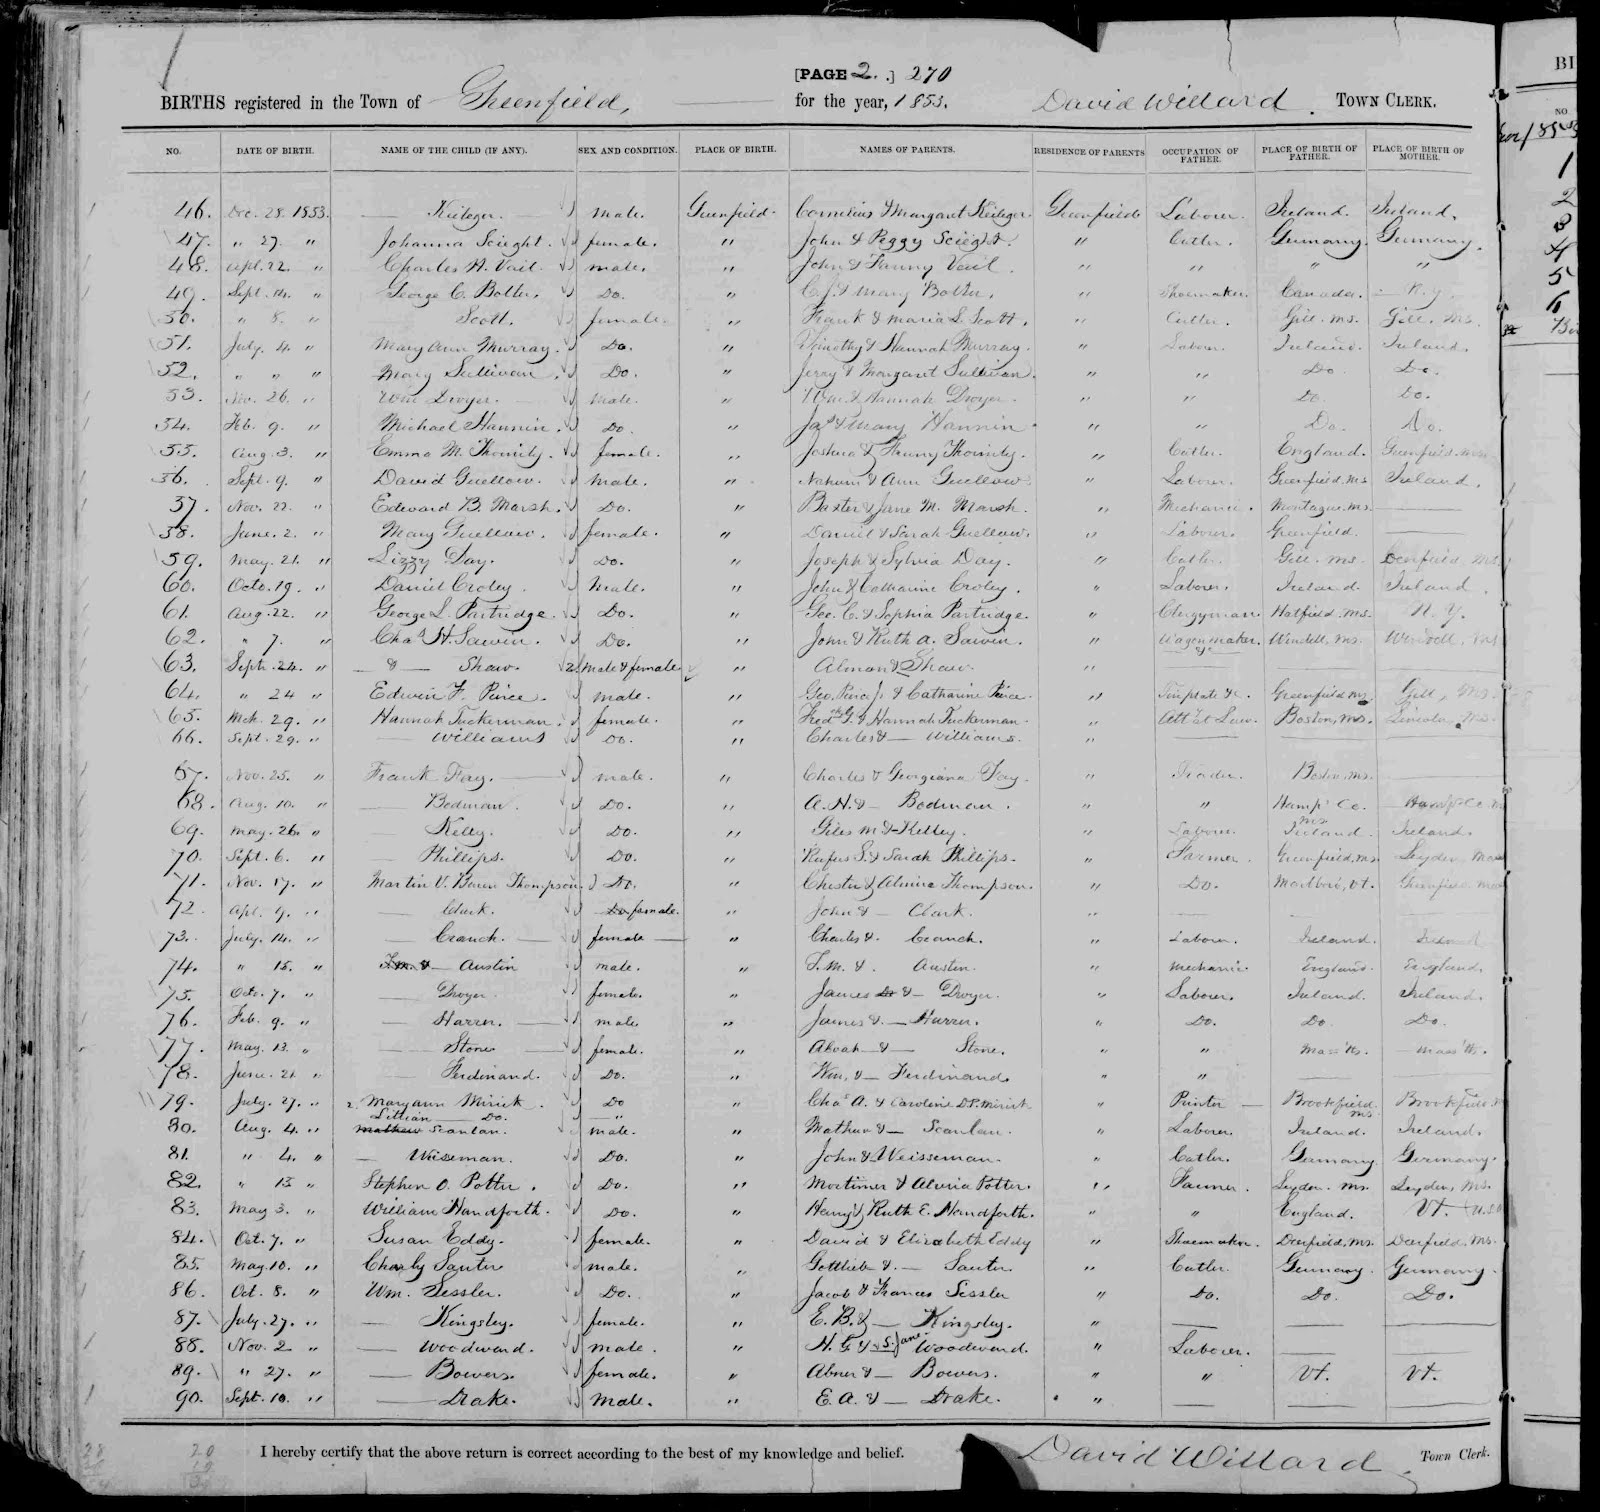 [PAGE 2.] 270
BIRTHS registered in the Town of Greenfield, for the year, 1853. David Willard. TOWN CLERK.
NO. DATE OF BIRTH. NAME OF THE CHILD (IF ANY). SEX AND CONDITION. PLACE OF BIRTH. NAMES OF PARENTS. RESIDENCE OF PARENTS OCCUPATION OF FATHER. PLACE OF BIRTH OF FATHER. PLACE OF BIRTH OF MOTHER.
46. Dec. 28. 1853. — male. Greenfield. Cornelius & Margaret Greenfield Laborer. Ireland. Ireland.
47. " 27. " Johanna Scieght. female. " John & Peggy Scieght. " Cutler. Germany. Germany.
48. Apl. 22. " Charles H. Vail. male. " John & Fanny Vail. " " " "
49. Sept. 14. " George C. Botter. Do. " C.J. & Mary Botter. " Shoemaker. Canada. N.Y.
50. " 8. " Scott. female. " Frank & Maria L. Scott. " Cutler. Gill. Ms. Gill. Ms.
51. July. 4. " Mary Ann Murray. Do. " Timothy & Hannah Murray. " Labour. Ireland. Ireland.
52. " " " Mary Sullivan. Do. " Jerry & Margaret Sullivan. " " Do. Do.
53. Nov. 26. " Wm Dwyer. male. " Wm. & Hannah Dwyer. " " Do. Do.
54. Feb. 9. " Michael Hannin. Do. " Jas & Mary Hannin. " " Do. Do.
55. Aug. 3. " Emma M. Thornily. female. " Joshua & Fanny Thornily. " Cutler. England. Greenfield. Mass
56. Sept. 9. " David Guellow. male. " Nahum & Ann Guellow. " Laborer. Greenfield, Ms Ireland.
57. Nov. 22. " Edward B. Marsh. Do. " Baxter & Jane M. Marsh. " Mechanic. Montague. Ms. —
58. June. 2. " Mary Guellow. female. " Daniel & Sarah Guellow. " Laborer. Greenfield. —
59. May. 21. " Lizzy Day. Do. " Joseph & Sylvia Day. " Cutler. Gill. Ms. Deerfield. Ms.
60. Octo. 19. " Daniel Croley. male. " John & Catharine Croley. " Laborer. Ireland. Ireland.
61. Aug. 22. " George L. Partridge. Do. " Geo. C. & Sophia Partridge. " Clergyman. Hatfield. Ms. N.Y.
62. " 7. " Chas H. Sawin. Do. " John & Ruth A. Sawin. " Wagonmaker. Wendell, Ms. Wendell, Ms
63. Sept. 24. " — & — Shaw. 2 male & female. " Almon & Shaw. " — — —
64. " 24 " Edwin F. Peirce. male. " Geo. Peirce Jr. & Catharine Peirce. " Tinplate &c. Greenfield Ms. Gill, Ms.
65. Mch. 29. " Hannah Tuckerman. female. " Fredk G. & Hannah Tuckerman. " Att at Law. Boston, Ms. Lincoln, Ms.
66. Sept. 29. " — Williams Do. " Charles & — Williams. " — — —
67. Nov. 25. " Frank Fay. — male. " Charles & Georgiana Fay. " Trader. Boston, Ms. —
68. Aug. 10. " — Bodman. Do. " A. H. & — Bodman. " " Hamp. Co. Ms Hamp Co. M
69. May. 26. " — Kelly. Do. " Giles M & Kelley. " Laborer. Ireland. Ireland.
70. Sept. 6. " — Phillips. Do. " Rufus S. & Sarah Phillips. " Farmer. Greenfield, Ms. Leyden, Mass
71. Nov. 17. " Martin V. Buren Thompson. Do. " Chester & Almira Thompson. " Do. Marlboro, Vt. Greenfield. Mass
72. Apl. 9. " — Clark. Do female. " John & — Clark. " — — —
73. July. 14. " — Cranch. — female — " Charles &. Cranch. " Laborer. Ireland. Ireland
74. " 15. " T.M. & — Austin male. " T. M. &. Austin. " Mechanic. England. England.
75. Oct. 7. " — Dwyer. female. " James Do & — Dwyer. " Laborer. Ireland. Ireland.
76. Feb. 9. " — Harren. — male " James & — Harren. " Do. Do. Do.
77. May. 13. " — Stone female. " Alvah & — Stone. " " Mass'tts. Mass'tts.
78. June. 21. " — Ferdinand. Do. " Wm. & — Ferdinand. " " — —
79. July. 27. " 2. Maryann Mirick. Do " Chas A. & Caroline D.P. Mirick " Printer — Brookfield Ms. Brookfield
Lillian Do. — "
80. Aug. 4. " Mathew Scanlan. male. " Mathew & — Scanlan. " Laborer. Ireland. Ireland.
81. " 4. " — Weiseman. Do. " John & Weisseman. " Cutler. Germany. Germany.
82. " 13 " Stephen O. Potter. Do. " Mortimer & Alvira Potter. " Farmer. Leyden. Ms. Leyden, Ms.
83. May 3. " William Handforth. Do. " Harry & Ruth E. Handforth. " " England. Vt. (U.S.
84. Oct. 7. " Susan Eddy. female. " David & Elizabeth Eddy " Shoemaker. Deerfield, Ms. Deerfield, Ms.
85. May. 10. " Charly Sauter male. " Gottlieb & — Sauter " Cutler. Germany. Germany.
86. Oct. 8. " Wm. Sessler. Do. " Jacob & Frances Sessler " Do. Do. Do.
87. July. 27. " — Kingsley. female. " E. B. & — Kingsley. " — — —
88. Nov. 2 " — Woodward. male. " H. G. & S. Jane Woodward. " Laborer. — —
89. " 27. " — Bowers. female. " Abner & — Bowers. " " Vt. Vt.
90. Sept. 10. " — Drake. male. " E. A. & — Drake. " — — —
I hereby certify that the above return is correct according to the best of my knowledge and belief. David Willard, Town Clerk.